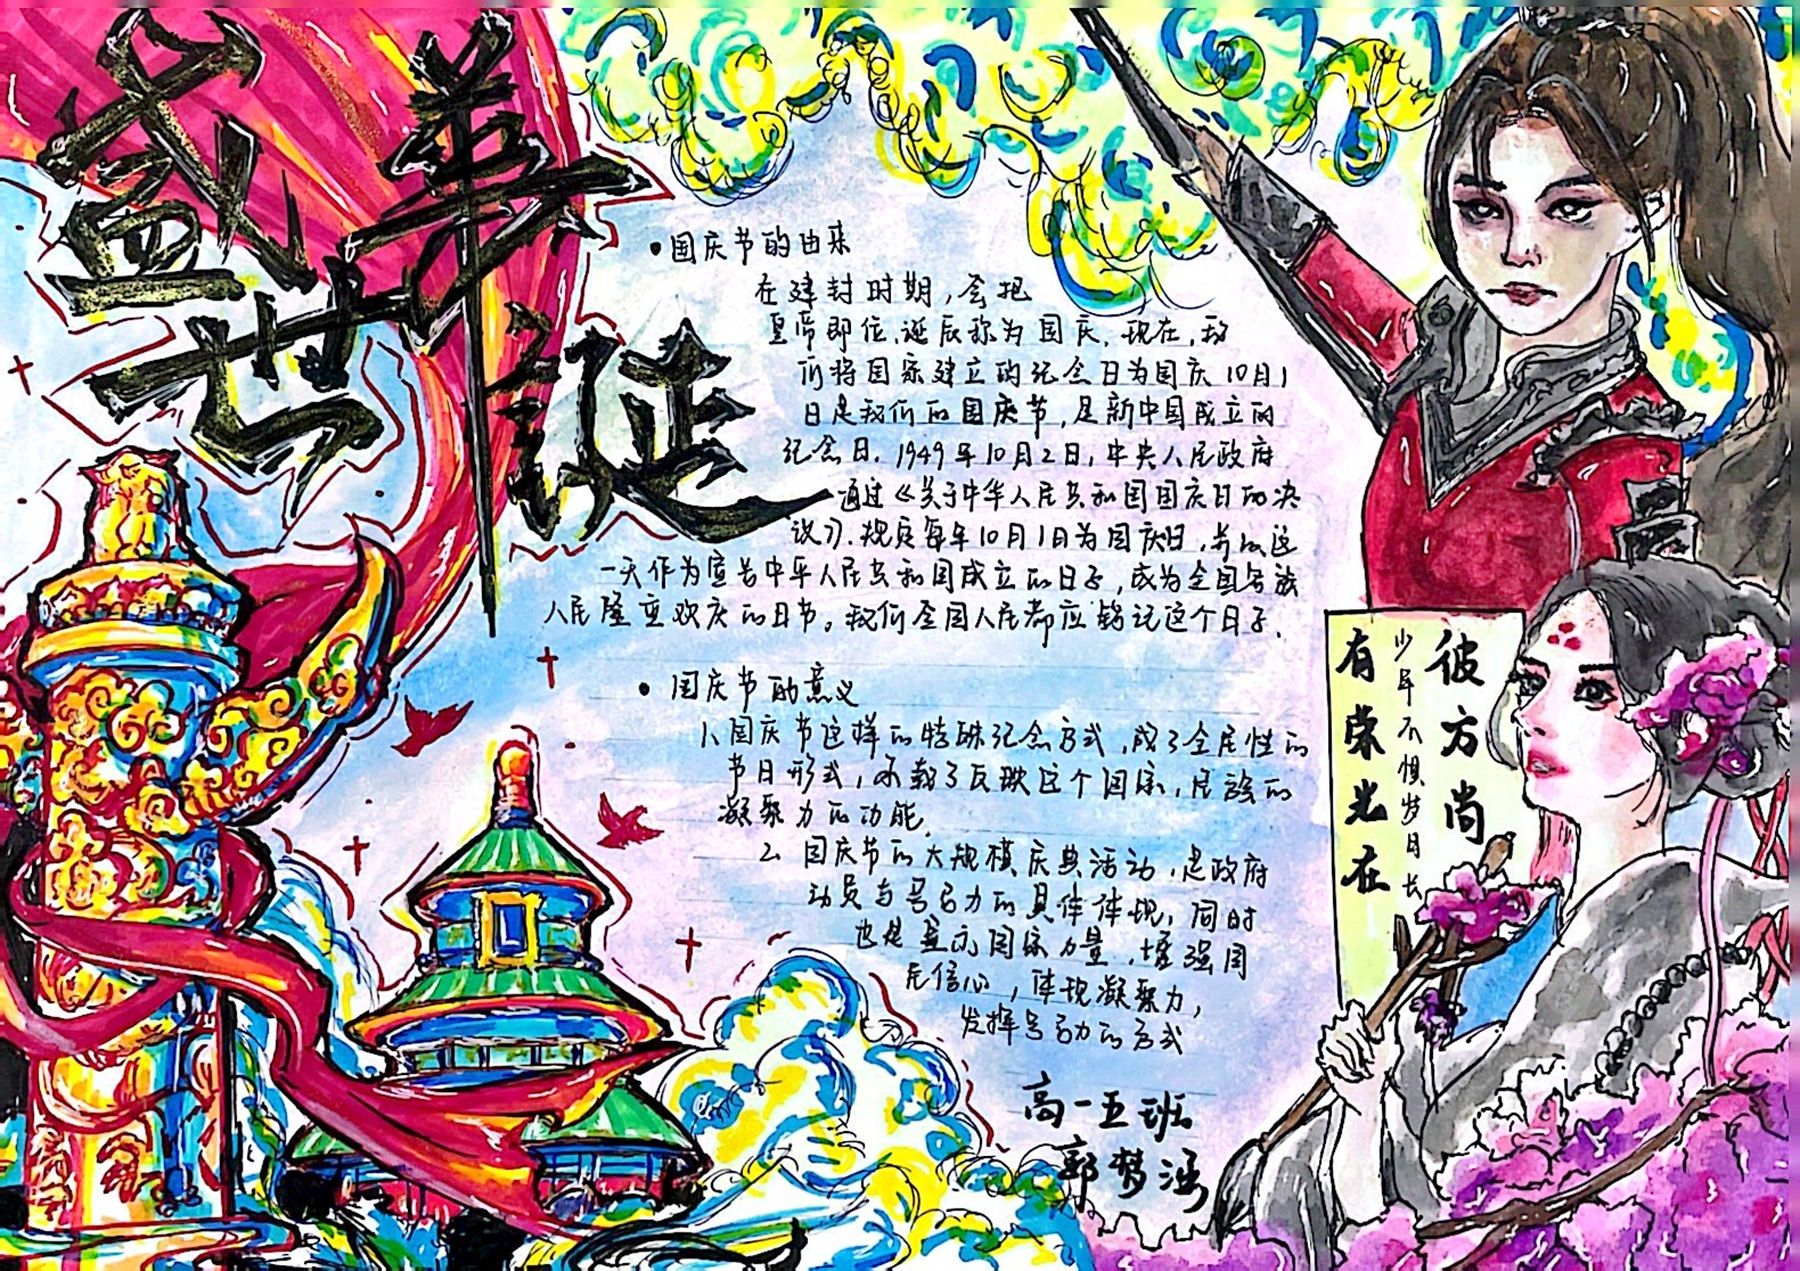 盛世華誕
•国庆节的由来
在建封时期,会把
皇帝即位.诞辰称为国庆.现在,我
们将国家建立的纪念日为国庆10月1
日是我们的国庆节,是新中国成立的
纪念日.1949年10月2日,中央人民政府
通过《关于中华人民共和国国庆日的决
议》.规定每年10月1日为国庆日,并以这
一天作为宣告中华人民共和国成立的日子,成为全国各族
人民隆重欢庆的日节。我们全国人民都应铭记这个日子.
•国庆节的意义
1、国庆节这样的特殊纪念方式,成了全民性的
节日形式,承载了反映这个国家,民族的
凝聚力的功能.
2、国庆节的大规模庆典活动,是政府
动员与号召力的具体体现,同时
也是显示国家力量,增强国
民信心,体现凝聚力,
发挥号召力的方式
高一五班
郭梦涵
彼方尚
少年不惧岁月长
有荣光在